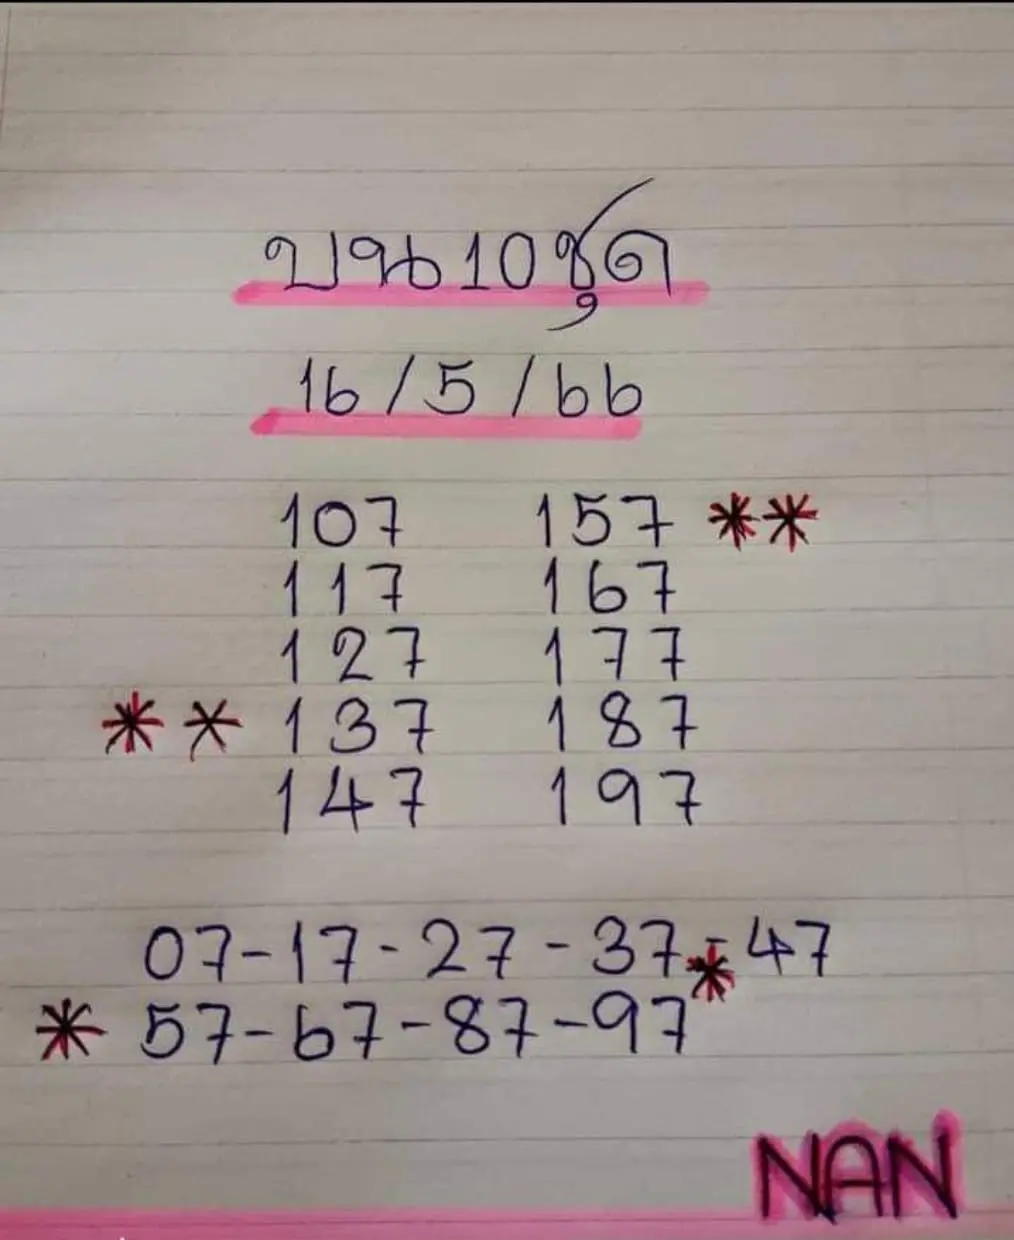 บน10ชุด
16/5/66
107 157 **
117 167
127 177
** 137 187
147 197
07-17-27-37*-47
* 57-67-87-97
NAN